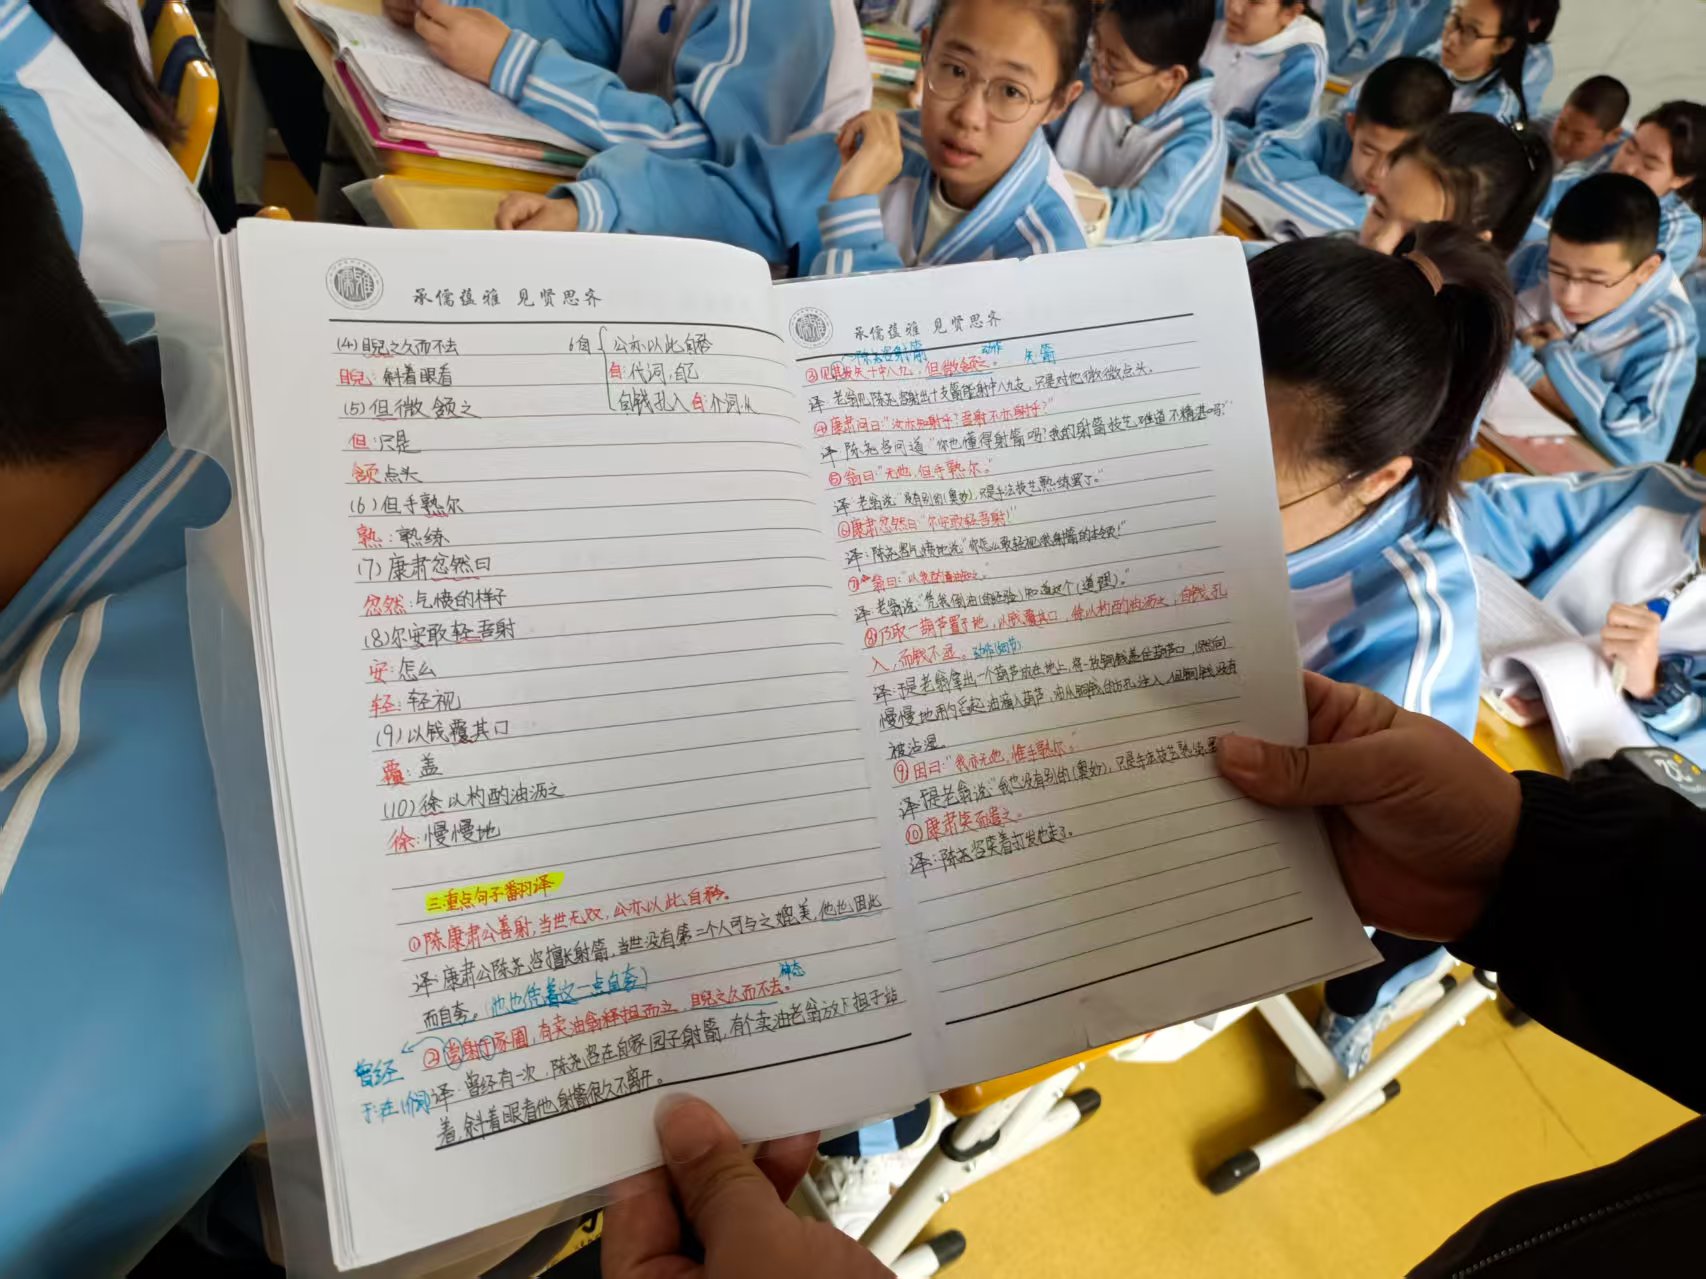 承儒蕴雅 见贤思齐
(4)睨之久而不去
睨:斜着眼看
(5)但微颔之
但:只是
颔:点头
(6)但手熟尔
熟:熟练
(7)康肃忿然曰
忿然:气愤的样子
(8)尔安敢轻吾射
安:怎么
轻:轻视
(9)以钱覆其口
覆:盖
(10)徐以杓酌油沥之
徐:慢慢地
6自
公亦以此自矜
自:代词,自己
自钱孔入 自:介词,从
三.重点句子翻译
①陈康肃公善射,当世无双,公亦以此自矜。
译:康肃公陈尧咨擅长射箭,当世没有第二个人可与之媲美,他也因此
而自夸。(他也凭着这一点自夸)
②尝射于家圃,有卖油翁释担而立,睨之久而不去。
神态
曾经
于:在 介词
译:曾经有一次,陈尧咨在自家园子射箭,有个卖油老翁放下担子站
着,斜着眼看他射箭很久不离开。
承儒蕴雅 见贤思齐
陈尧咨射箭 动作 矢 箭
③见其发矢十中八九,但微颔之。
译:老翁见陈尧咨射出十支箭能射中八九支,只是对他微微点头。
④康肃问曰:"汝亦知射乎?吾射不亦精乎?"
译:陈尧咨问道"你也懂得射箭吗?我的射箭技艺难道不精湛吗?"
⑤翁曰:"无他,但手熟尔。"
译:老翁说:"没有别的(奥妙),只是手法技艺熟练罢了。"
⑥康肃忿然曰"尔安敢轻吾射!"
译:陈尧咨气愤地说"你怎么敢轻视我射箭的本领!"
⑦翁曰:"以我酌油知之。"
译:老翁说:"凭我倒油(的经验)知道这个(道理)。"
⑧乃取一葫芦置于地,以钱覆其口,徐以杓酌油沥之,自钱孔
入,而钱不湿。动作(细节)
译:于是老翁拿出一个葫芦放在地上,将一枚铜钱盖住葫芦口,
慢慢地用勺舀起油灌入葫芦,油从铜钱的方孔注入,但铜钱没有
被沾湿。
⑨因曰:"我亦无他,惟手熟尔。"
译:于是老翁说:"我也没有别的(奥妙),只是手法技艺熟练
⑩康肃笑而遣之。
译:陈尧咨笑着打发他走了。